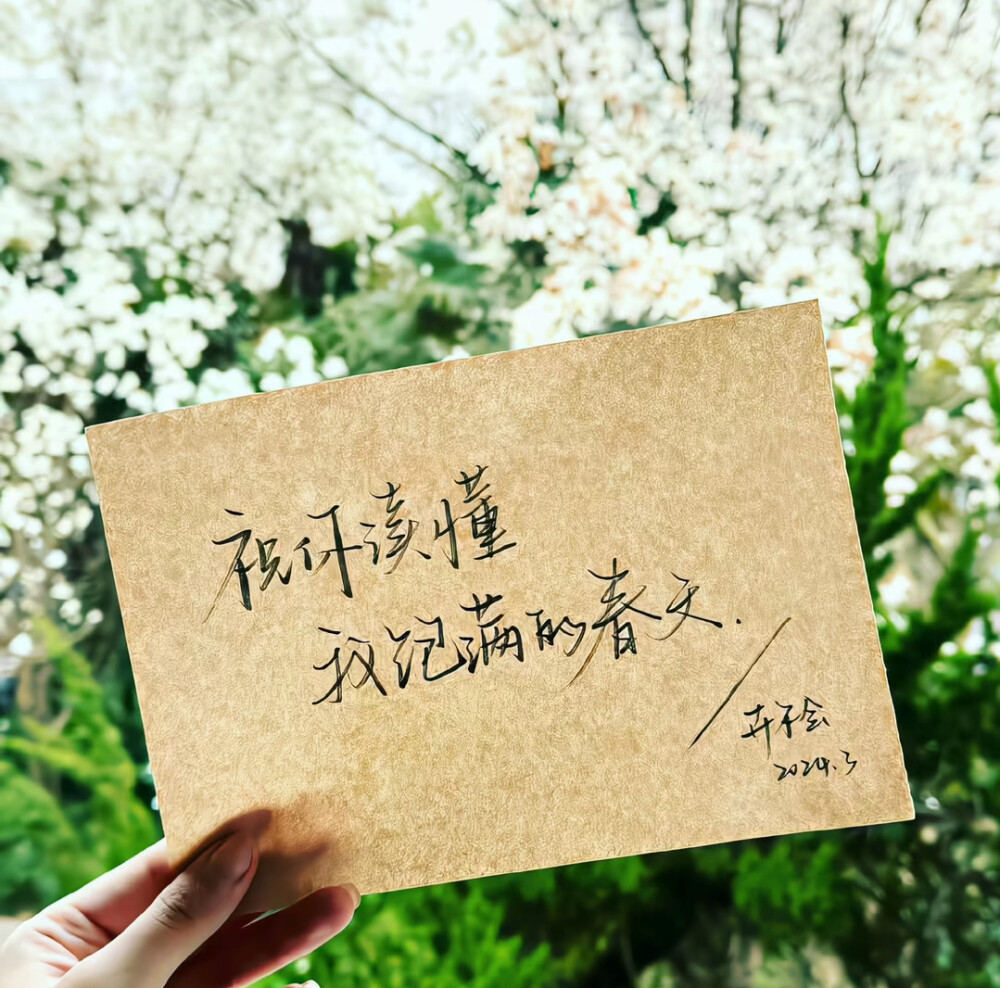 祝你读懂
我饱满的春天.
卉不会
2024.3